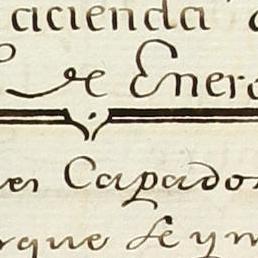 acienda
de Enero
es Capado
rque se ym